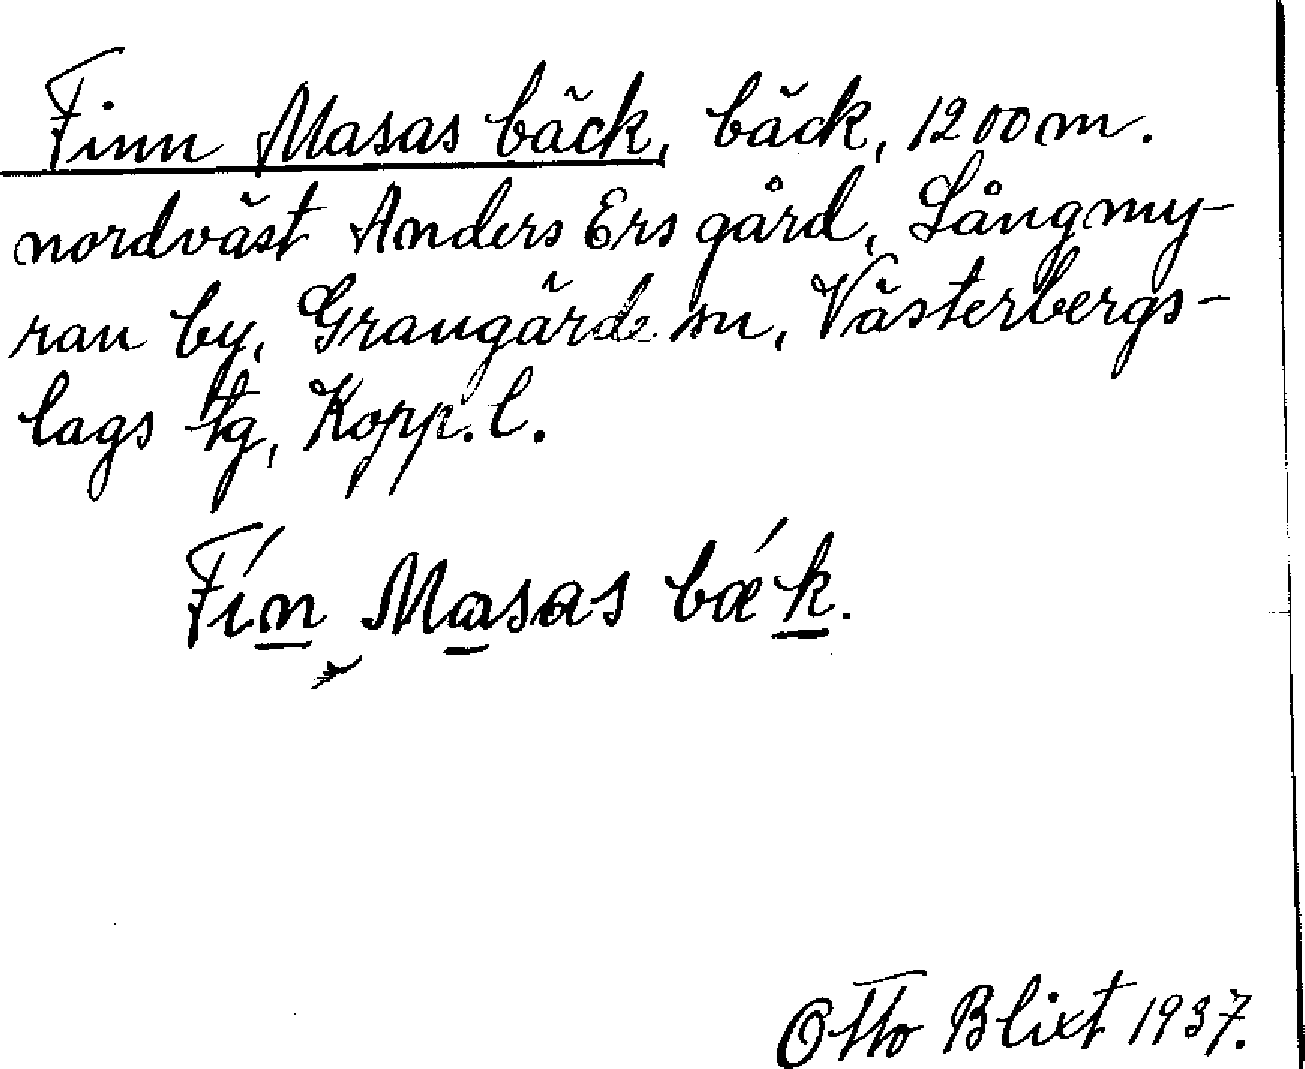 Finn Masas bäck, bäck, 1200 m.
nordväst Anders Ers gård, Långmy-
ran by, Grangärde sn, Västerbergs-
lags tg, Kopp. l.
Fín Masas bǽk.
Otto Blixt 1937.